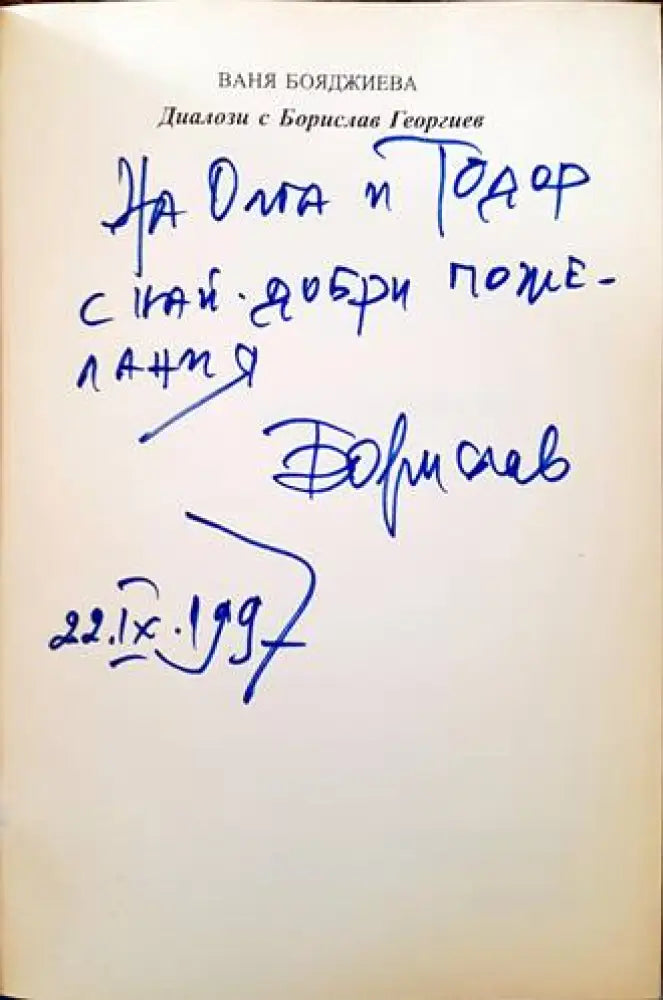 ВАНЯ БОЯДЖИЕВА
Диалози с Борислав Георгиев
На Олга и Тодор
с най-добри поже-
лания
Борислав
22.IX.1997